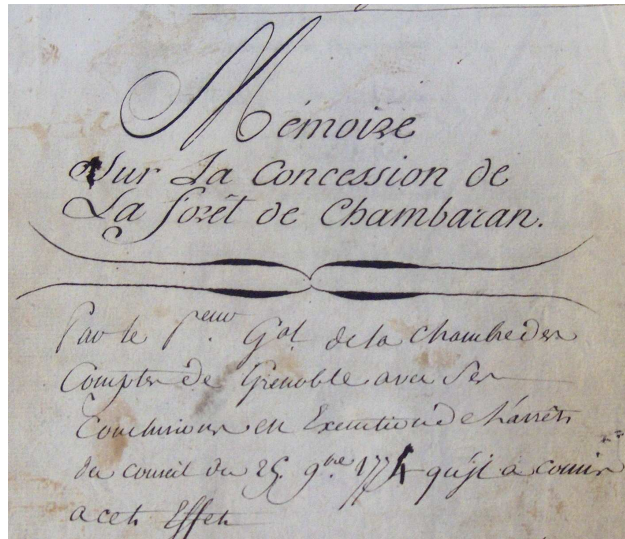 Mémoire
Sur La Concession de
La forêt de Chambaran.
Par le P.eur G.al de la Chambre des
Comptes de Grenoble avec Ses
Conclusions en Execution de L'arrêt
du conseil du 25. 9.bre 1774 qui l'a comis
a cet Effet